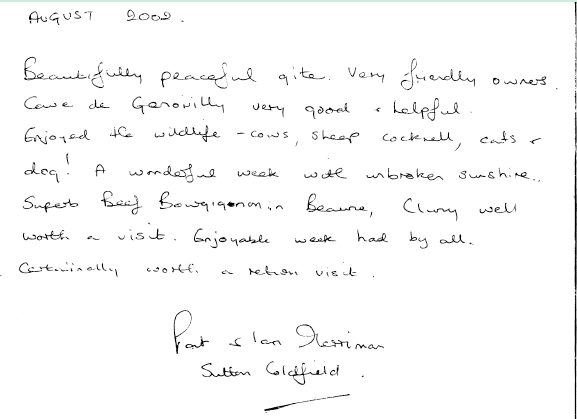 AUGUST 2002.
Beautifully peaceful gite. Very friendly owners.
Cave de Genouilly very good & helpful.
Enjoyed the wildlife - cows, sheep cockrell, cats &
dog! A wonderful week with unbroken sunshine..
Superb Beef Bourgignonn in Beaune, Cluny well
worth a visit. Enjoyable week had by all.
Certainally worth a return visit.
Pat & Ian Merriman
Sutton Coldfield.